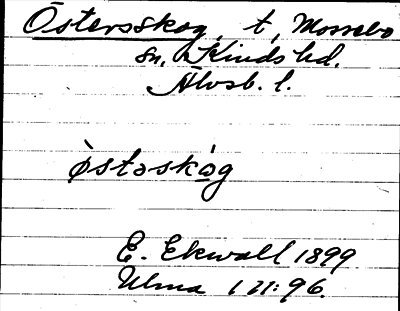 Östersskog, t, Mossebo
sn, Kinds hd.
Älvsb. l.
òstəskòg
E. Ekwall 1899
Ulma 121:96.